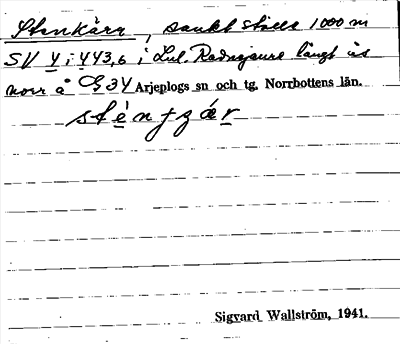 Stenkärr, sankt ställe 1000 m
SV Y i 443,6 i Lul. Radnejaure längt ås
norr å G 34 Arjeplogs sn och tg. Norrbottens län.
sté̱nţẕæ̀ṟ
Sigvard Wallström, 1941.